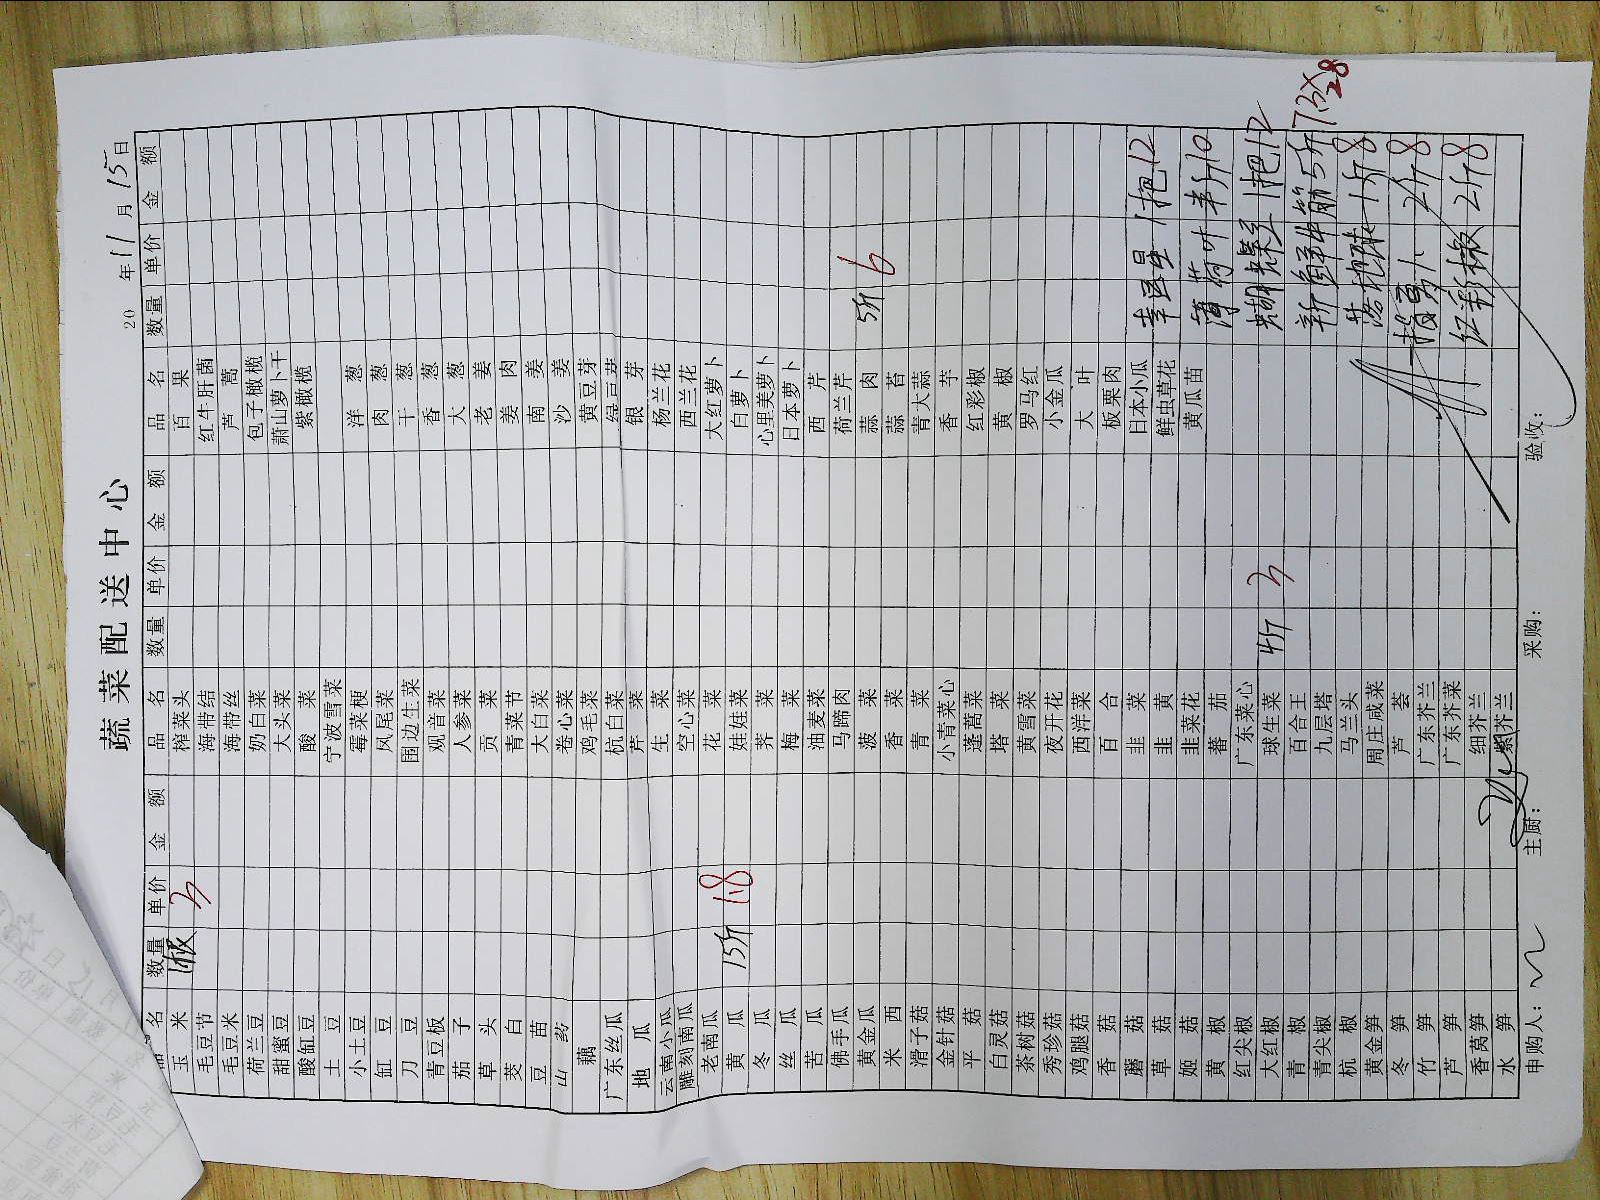 蔬菜配送中心
20 年11月15日
品名 数量 单价 金额 品名 数量 单价 金额 品名 数量 单价 金额
玉米 3 榨菜头 百果
毛豆节 海带结 红牛肝菌
毛豆米 海带丝 芦蒿
荷兰豆 奶白菜 包子橄榄
甜蜜豆 大头菜 萧山萝卜干
酸缸豆 酸菜 紫橄榄
土豆 宁波雪菜
小土豆 霉菜梗 洋葱
缸豆 凤尾菜 肉葱
刀豆 围边生菜 干葱
青豆板 观音菜 香葱
茄子 人参菜 大葱
草头 贡菜 老姜
茭白 青菜节 姜肉
豆苗 大白菜 南姜
山药 卷心菜 沙姜
藕 鸡毛菜 黄豆芽
广东丝瓜 杭白菜 绿豆芽
地瓜 芹菜 银芽
云南小瓜 生菜 杨兰花
雕刻南瓜 空心菜 西兰花
老南瓜 花菜 大红萝卜
黄瓜 15斤 1.8 娃娃菜 白萝卜
冬瓜 荠菜 心里美萝卜
丝瓜 梅菜 日本萝卜
苦瓜 油麦菜 西芹
佛手瓜 马蹄肉 荷兰芹
黄金瓜 菠菜 蒜肉 5斤 6
米西 香菜 蒜苔
滑子菇 青菜 青大蒜
金针菇 小青菜心 香芋
平菇 蓬蒿菜 红彩椒
白灵菇 塔菜 黄椒
茶树菇 黄雪菜 罗马红
秀珍菇 夜开花 小金瓜
鸡腿菇 西洋菜 大叶
香菇 百合 板栗肉
蘑菇 韭菜 日本小瓜 幸运星 1把 12
草菇 韭黄 鲜虫草花
姬菇 韭菜花 黄瓜苗 薄荷叶 半斤 10
黄椒 蕃茄
红尖椒 广东菜心 蝴蝶兰 1把 12
大红椒 球生菜 4斤 3
青椒 百合王 5斤 28
青尖椒 九层塔
杭椒 马兰头 1斤 8
黄金笋 周庄咸菜
冬笋 芦荟 2斤 8
竹笋 广东芥兰
芦笋 广东芥菜 红彩椒 2斤 8
香莴笋 细芥兰
水笋 紫芥兰
申购人: 主厨: 采购: 验收: